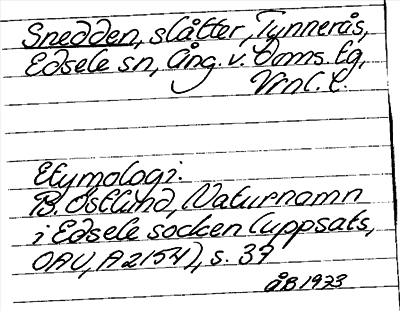 Snedden, slåtter, Tynnerås,
Edsele sn, Ång. v. doms. lg,
Vrnl. l.
Etymologi:
B. Östlind, Naturnamn
i Edsele socken (uppsats,
OAU, A2154), s. 37
ÅB 1973